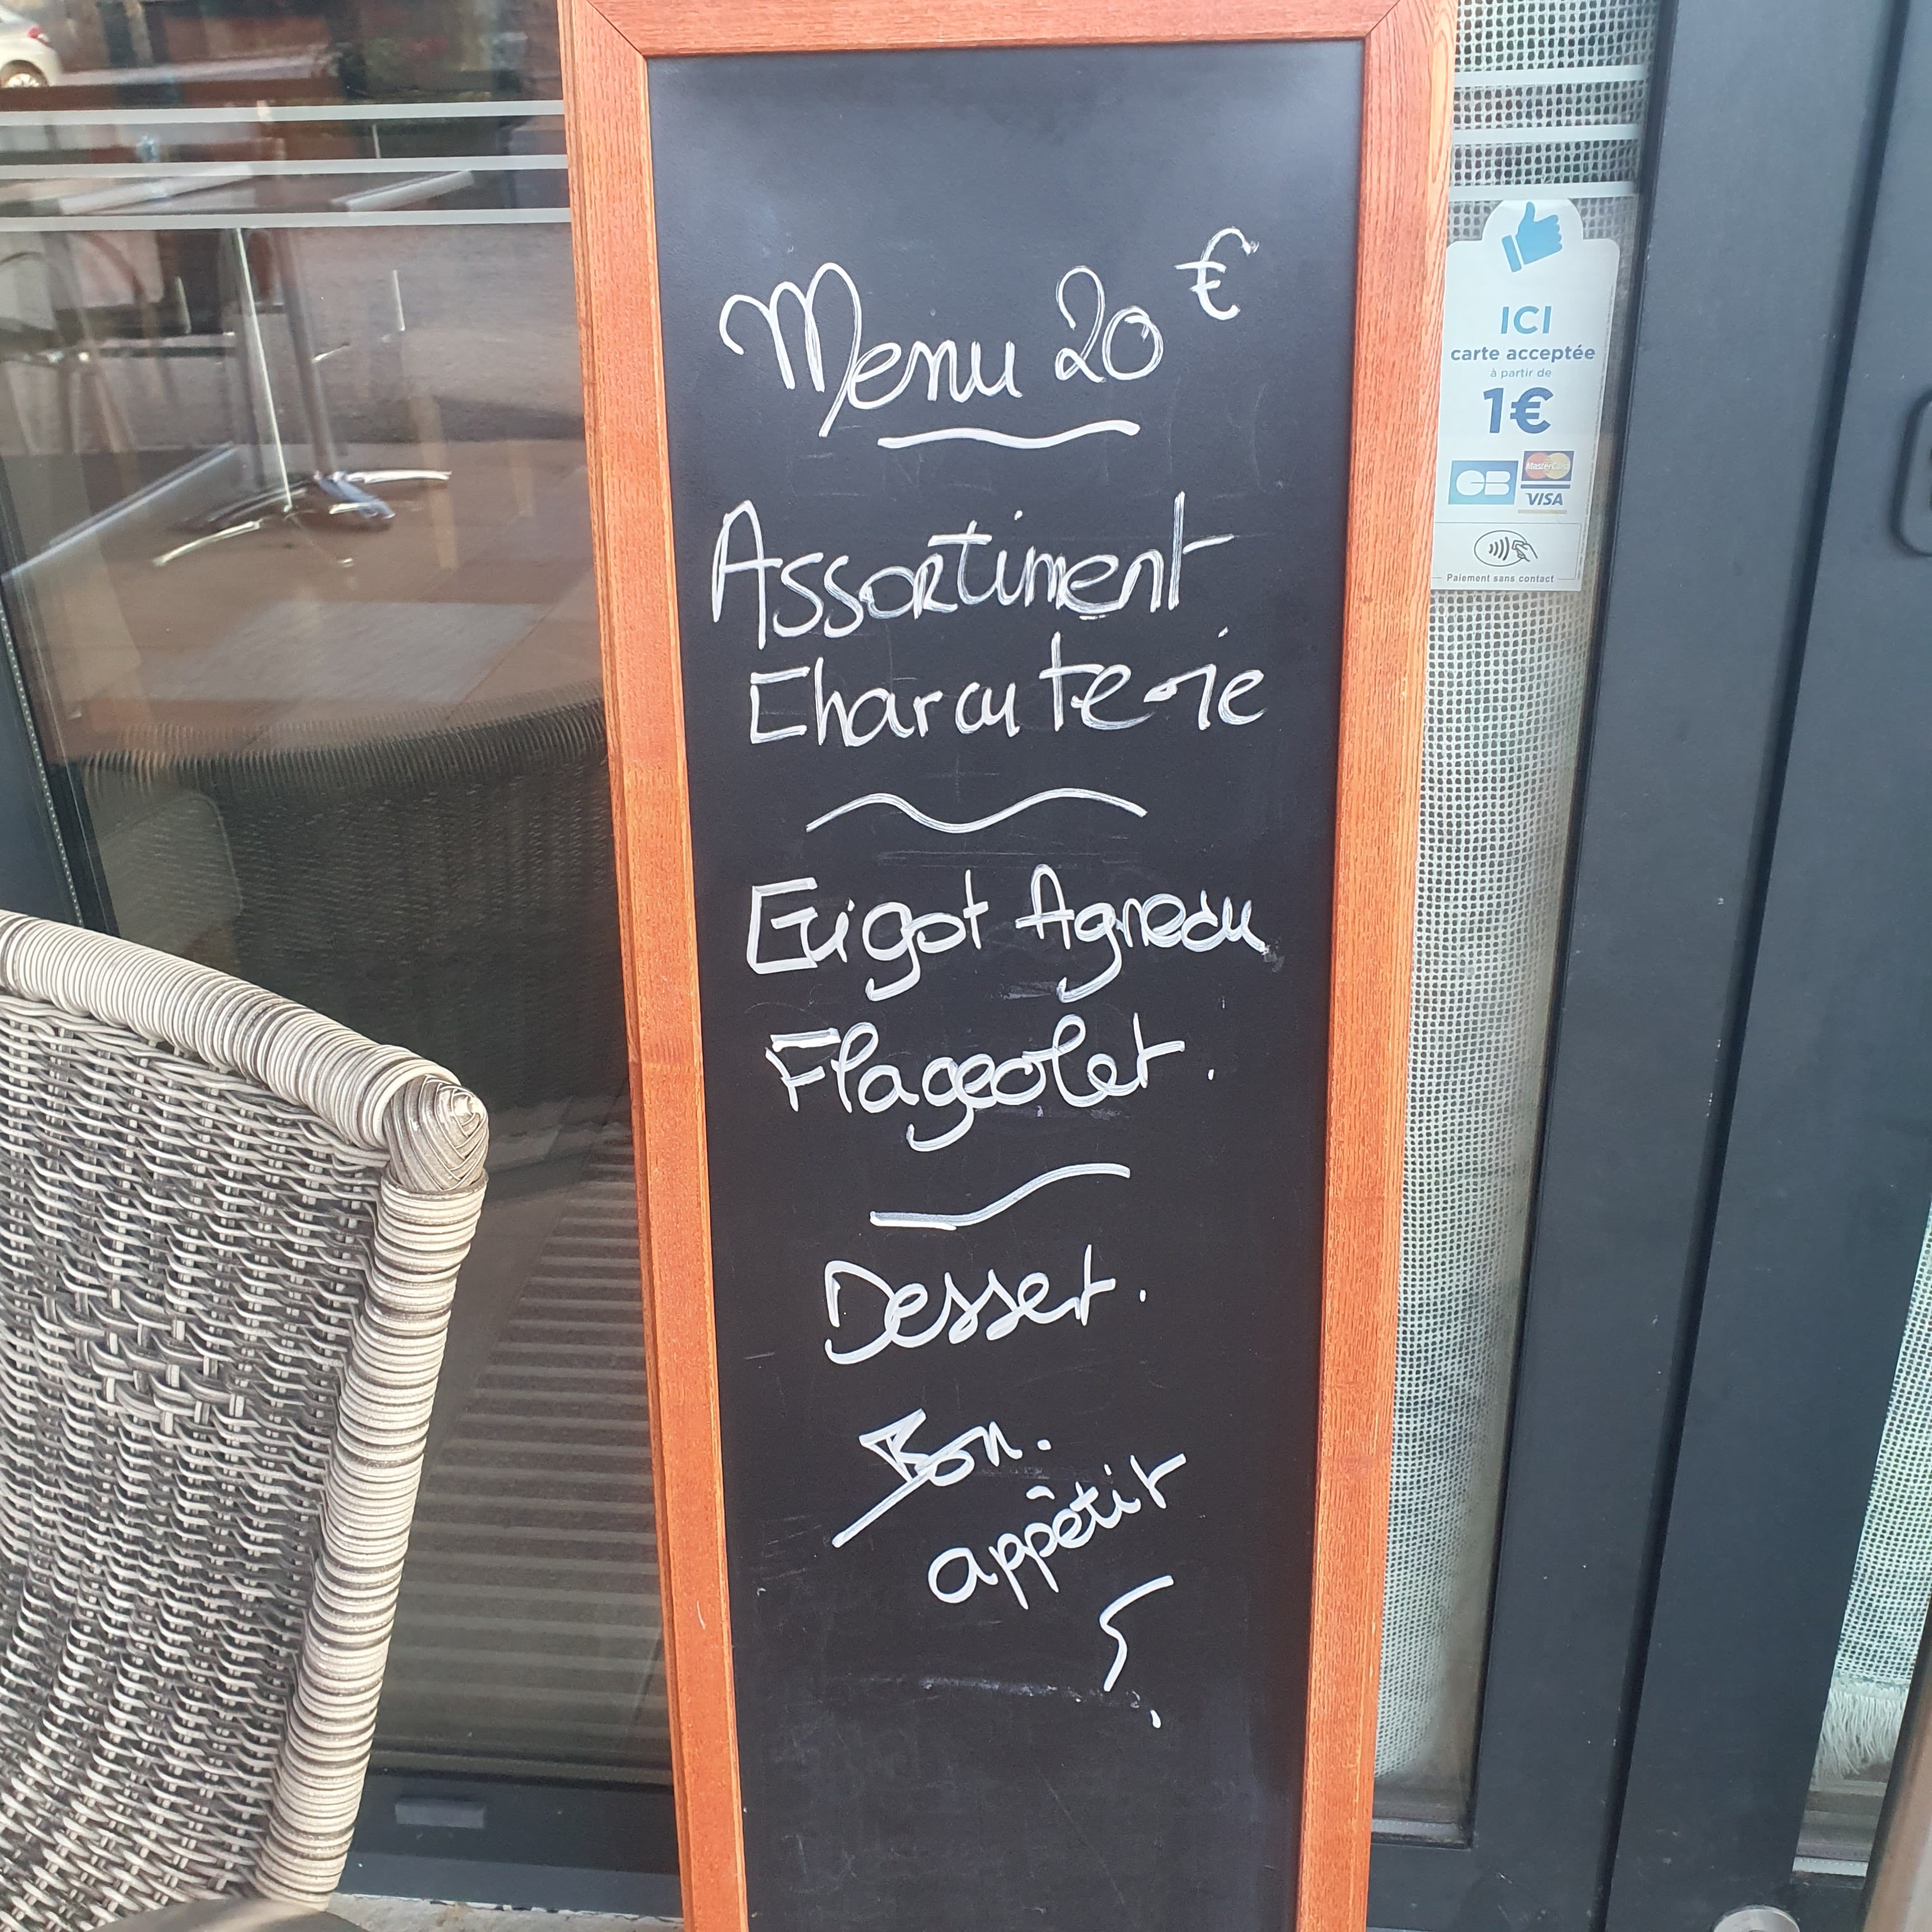 Menu 20 €
Assortiment
Charcuterie
Gigot Agneau
Flageolet.
Dessert.
Bon.
appêtit
!
ICI
carte acceptée
à partir de
1€
CB
MasterCard
VISA
Paiement sans contact